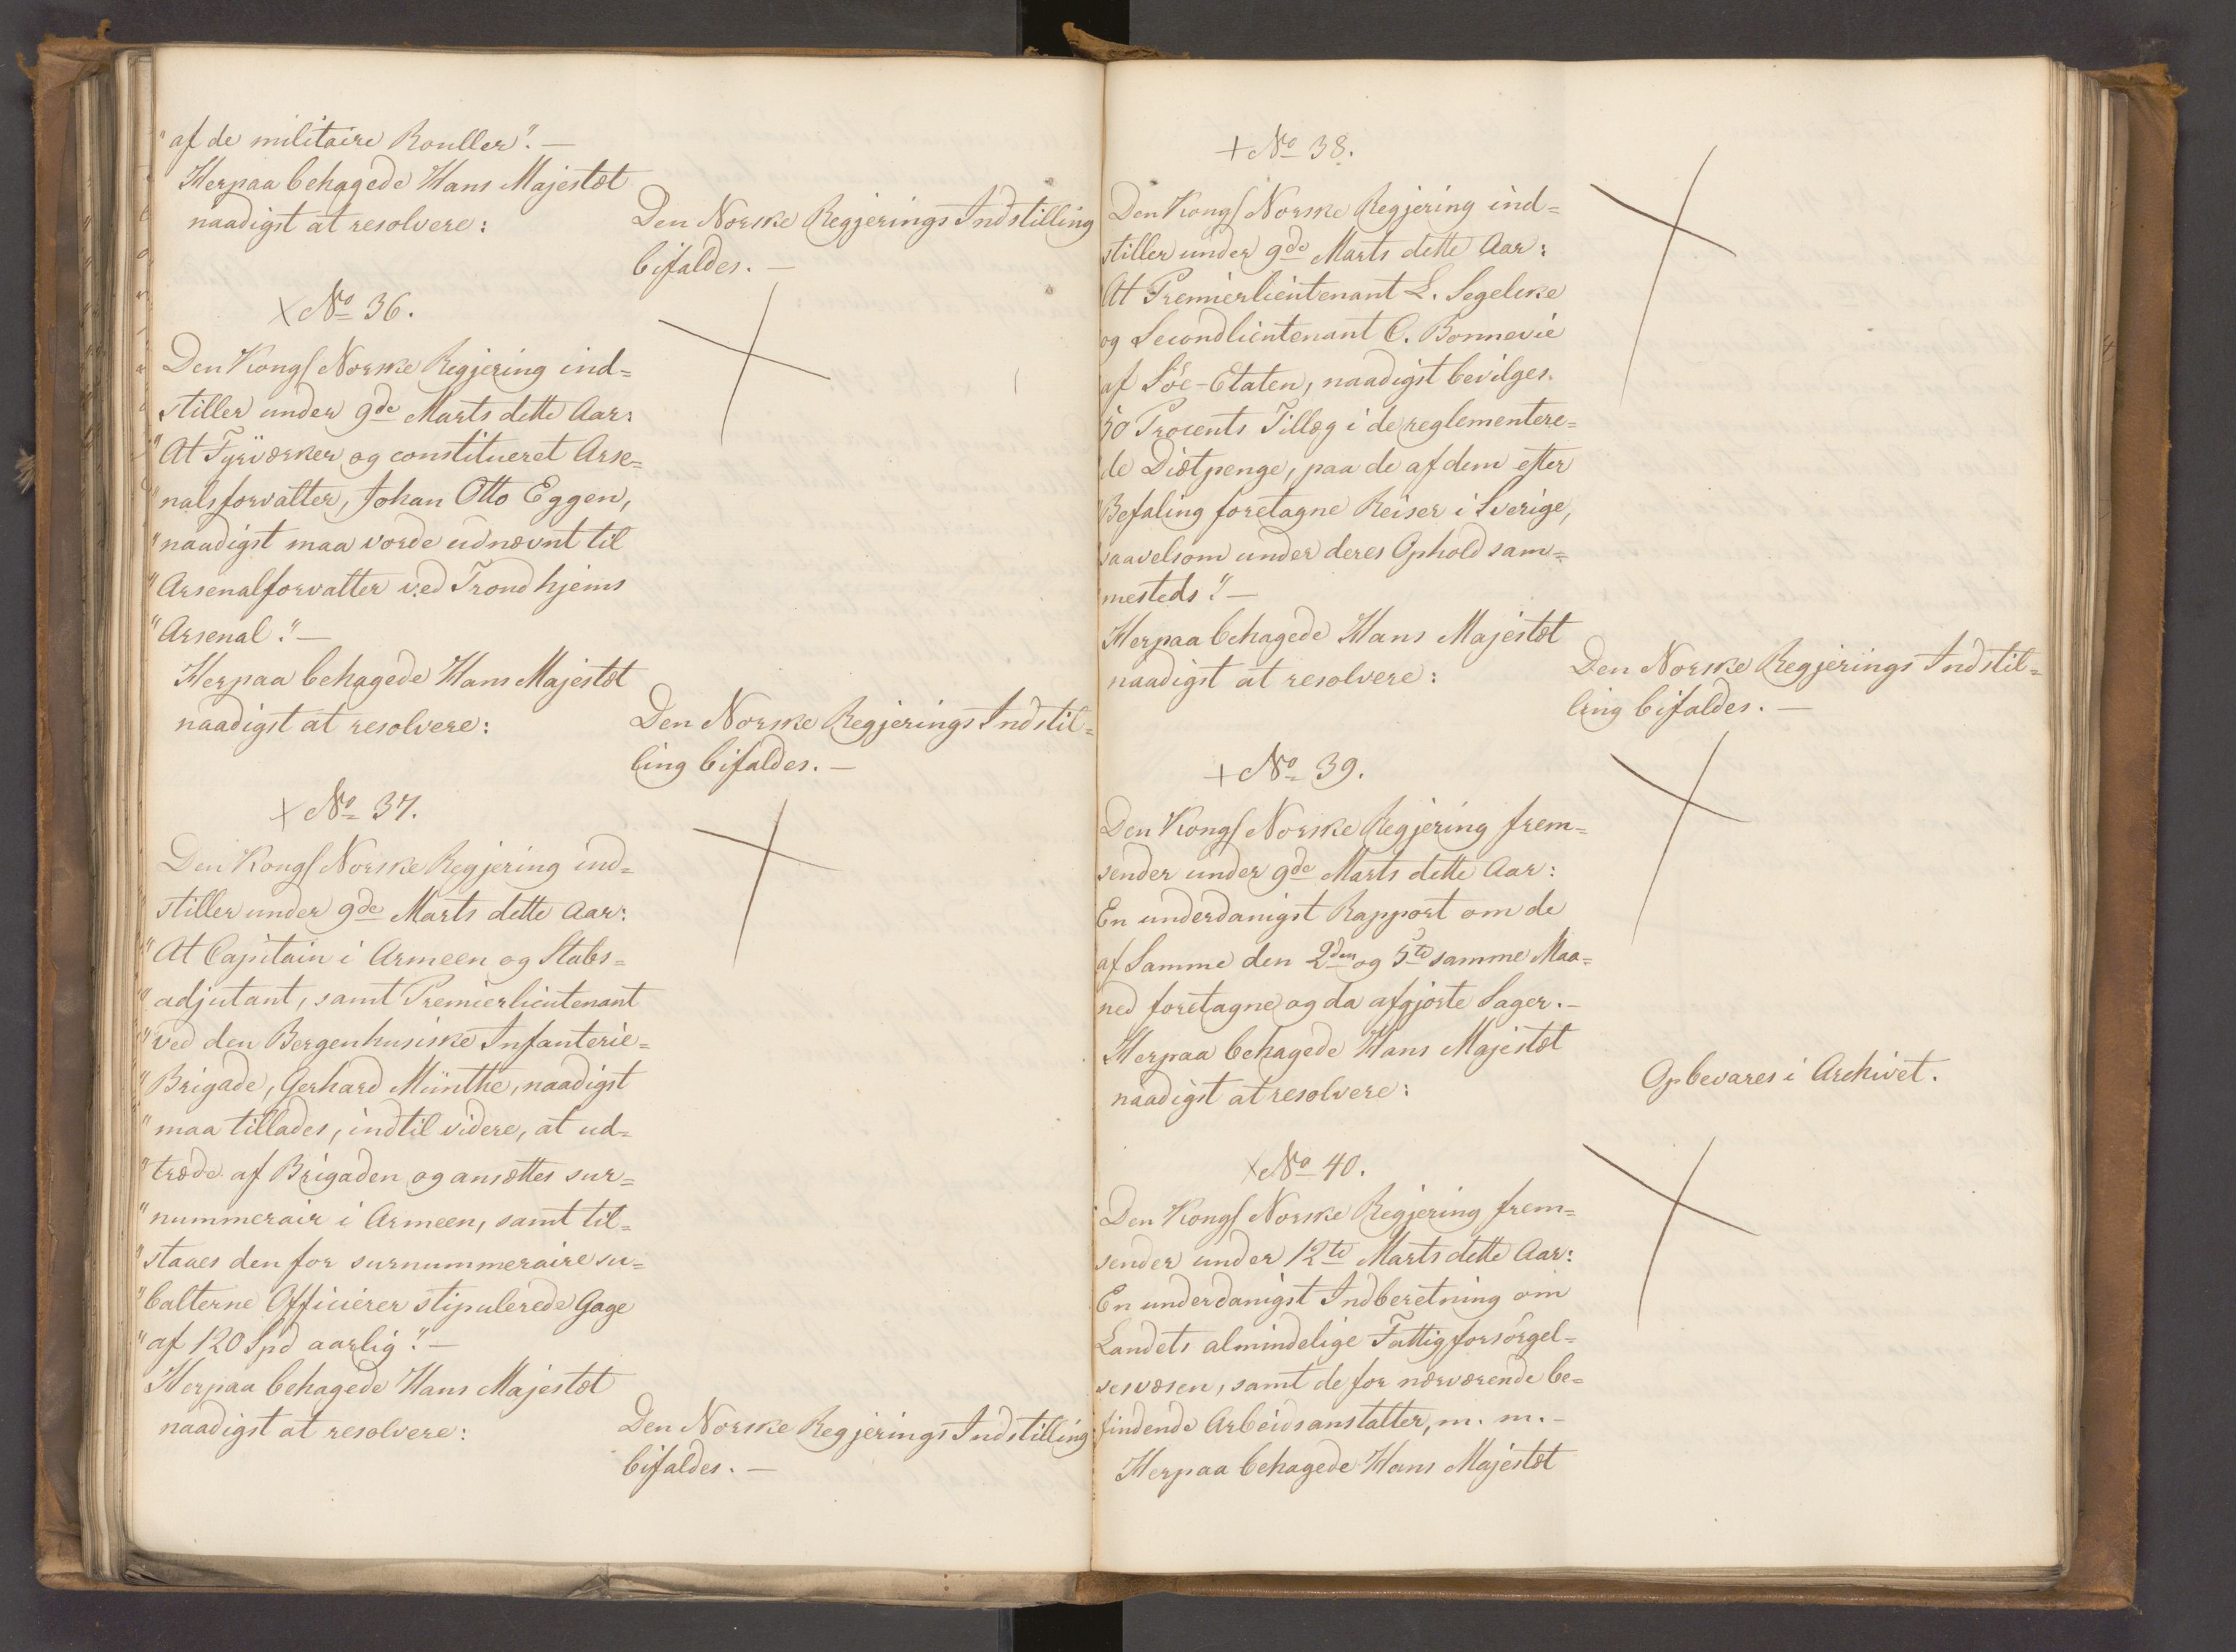 "af de militaire Rouller". —
Herpaa behagede Hans Majestæt
naadigst at resolvere:
Den Norske Regjerings Indstilling
bifaldes. —
+ No 36.
Den Kongl Norske Regjering ind=
stiller under 9de Marts dette Aar:
"At Fyrværker og constitueret Arse=
"nalsforvalter, Johan Otto Eggen,
"naadigst maa vorde udnævnt til
"Arsenalforvalter ved Trondhjems
"Arsenal". —
Herpaa behagede Hans Majestæt
naadigst at resolvere:
Den Norske Regjerings Indstil=
ling bifaldes. —
+ No 37.
Den Kongl Norske Regjering ind=
stiller under 9de Marts dette Aar:
"At Capitain i Armeen og Stabs=
"adjutant, samt Premierlieutenant
"ved den Bergenhusiske Infanterie=
"Brigade, Gerhard Münthe, naadigst
"maa tillades, indtil videre, at ud=
"træde af Brigaden og ansættes sur=
"nummerair i Armeen, samt til=
"staaes den for surnummeraire su=
"balterne Officierer stipulerede Gage
"af 120 Spd aarlig". —
Herpaa behagede Hans Majestæt
naadigst at resolvere:
Den Norske Regjerings Indstilling
bifaldes. —
+ No 38.
Den Kongl Norske Regjering ind=
stiller under 9de Marts dette Aar:
At Premierlieutenant L. Segelcke
og Secondlieutenant C. Bonnevie
af Söe-Etaten, naadigst bevilges
50 Procents Tillæg i de reglementere=
de Diætpenge, paa de af dem efter
Befaling foretagne Reiser i Sverige,
saavelsom under deres Ophold sam=
mesteds". —
Herpaa behagede Hans Majestæt
naadigst at resolvere:
Den Norske Regjerings Indstil=
ling bifaldes. —
+ No 39.
Den Kongl Norske Regjering frem=
sender under 9de Marts dette Aar:
En underdanigst Rapport om de
af Samme den 2den og 5te samme Maa=
ned foretagne og da afgjorte Sager. —
Herpaa behagede Hans Majestæt
naadigst at resolvere:
Opbevares i Archivet.
+ No 40.
Den Kongl Norske Regjering frem=
sender under 12te Marts dette Aar:
En underdanigst Indberetning om
Landets almindelige Fattigforsörgel=
sesvæsen, samt de for nærværende be=
findende Arbeidsanstalter, m. m. —
Herpaa behagede Hans Majestæt